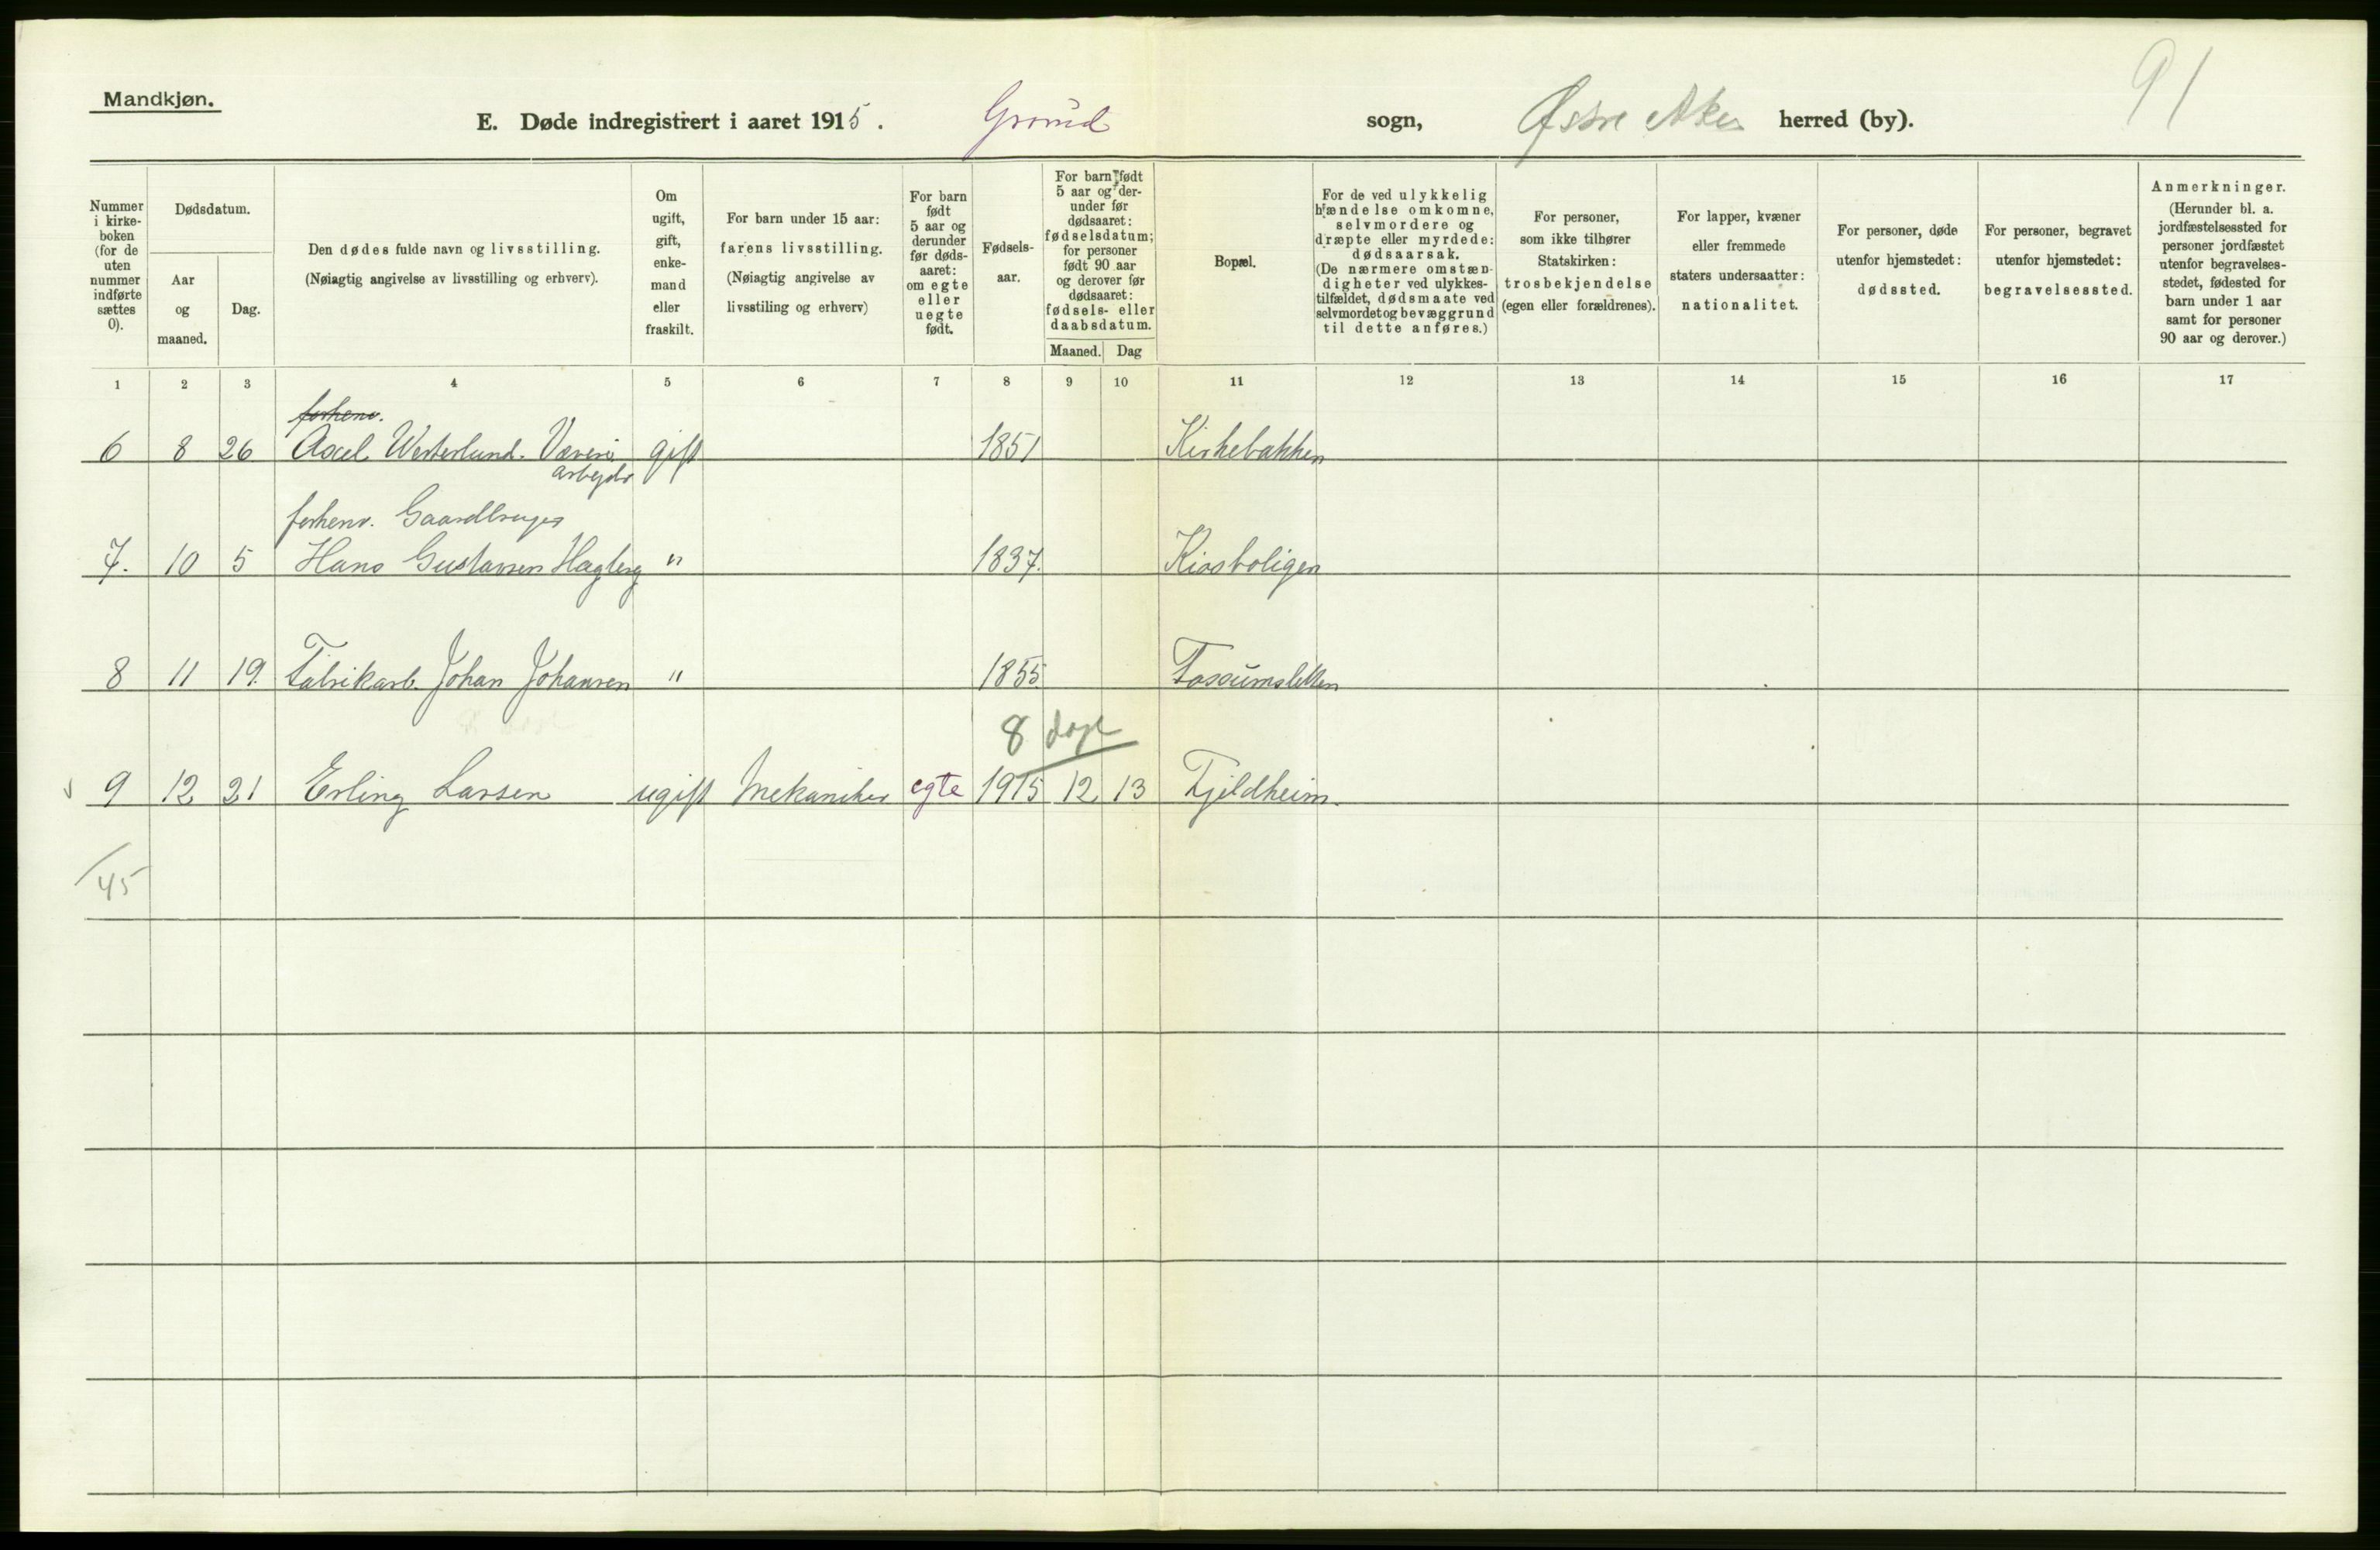 Mandkjøn.
91
E. Døde indregistrert i aaret 1915. Grorud sogn, Østre Aker herred (by).
Nummer i kirke-boken (for de uten nummer indførte sættes 0).
Dødsdatum.
Aar og maaned.
Dag.
Den dødes fulde navn og livsstilling.
(Nøiagtig angivelse av livsstilling og erhverv).
Om ugift, gift, enkemand eller fraskilt.
For barn under 15 aar:
farens livsstilling.
(Nøiagtig angivelse av livsstiling og erhverv)
For barn født 5 aar og derunder før døds-aaret: om egte eller uegte født.
Fødsels-aar.
For barn født 5 aar og der-under før dødsaaret: fødselsdatum; for personer født 90 aar og derover før dødsaaret: fødsels- eller daabsdatum.
Maaned. Dag
Bopæl.
For de ved ulykkelig hændelse omkomne, selvmordere og dræpte eller myrdede: dødsaarsak.
(De nærmere omstæn-digheter ved ulykkes-tilfældet, dødsmaate ved selvmordet og bevæggrund til dette anføres.)
For personer, som ikke tilhører Statskirken: trosbekjendelse (egen eller forældrenes).
For lapper, kvæner eller fremmede staters undersaatter: nationalitet.
For personer, døde utenfor hjemstedet: dødssted.
For personer, begravet utenfor hjemstedet: begravelsessted.
Anmerkninger.
(Herunder bl. a. jordfæstelsessted for personer jordfæstet utenfor begravelses-stedet, fødested for barn under 1 aar samt for personer 90 aar og derover.)
1 2 3 4 5 6 7 8 9 10 11 12 13 14 15 16 17
forhenv.
6 8 26 Axel Westerlund. Væveri gift 1851 Kirkebakken
arbejder
forhenv. Gaardbruger
7. 10 5 Hans Gustavsen Hagberg " 1837. Kiosboligen
8 11 19. Fabrikarb. Johan Johansen " 1855 Fossumsletten
8 dage
9 12 21 Erling Larsen ugift Mekaniker egte 1915 12 13 Fjeldheim.
45